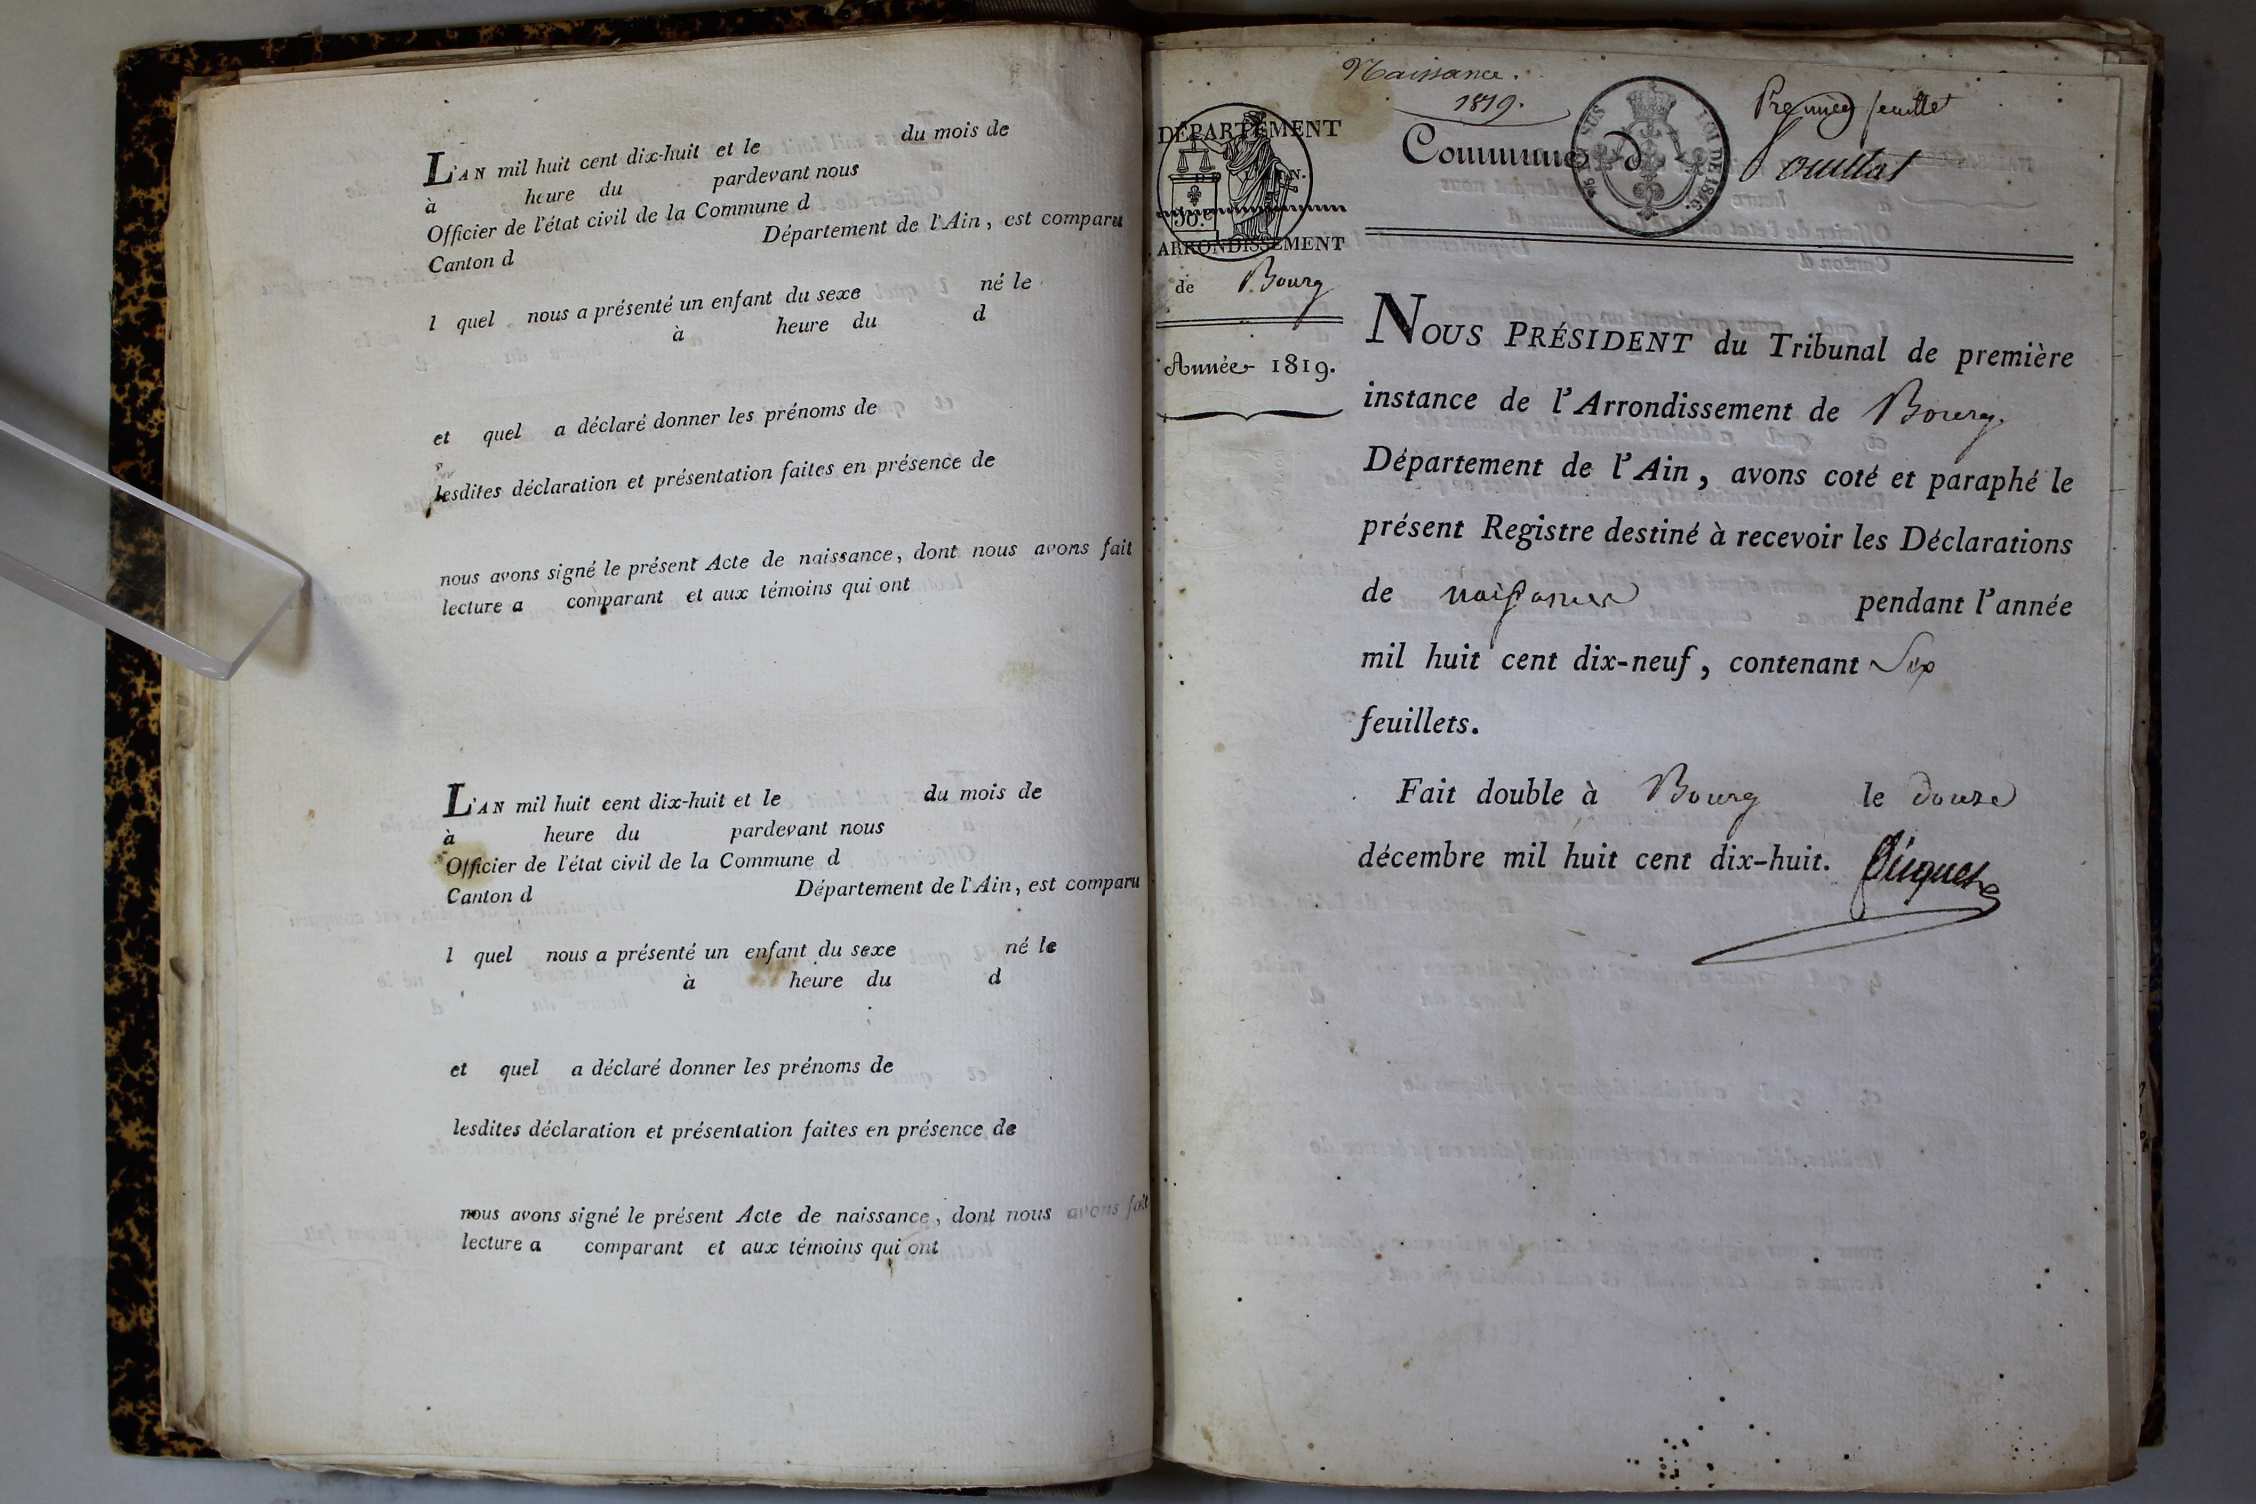 L'AN mil huit cent dix-huit et le du mois de
à heure du pardevant nous
Officier de l'état civil de la Commune d
Canton d Département de l'Ain, est comparu
l quel nous a présenté un enfant du sexe né le
à heure du d
et quel a déclaré donner les prénoms de
lesdites déclaration et présentation faites en présence de
nous avons signé le présent Acte de naissance, dont nous avons fait
lecture a comparant et aux témoins qui ont
L'AN mil huit cent dix-huit et le du mois de
à heure du pardevant nous
Officier de l'état civil de la Commune d
Canton d Département de l'Ain, est comparu
l quel nous a présenté un enfant du sexe né le
à heure du d
et quel a déclaré donner les prénoms de
lesdites déclaration et présentation faites en présence de
nous avons signé le présent Acte de naissance, dont nous avons fait
lecture a comparant et aux témoins qui ont
Naissance.
1819.
Premier feuillet
DÉPARTEMENT
50.c
ARRONDISSEMENT
de Bourg
Année 1819.
Commune de Pouillat
LOI DE 1816.
NOUS PRÉSIDENT du Tribunal de première
instance de l'Arrondissement de Bourg
Département de l'Ain, avons coté et paraphé le
présent Registre destiné à recevoir les Déclarations
de naissances pendant l'année
mil huit cent dix-neuf, contenant Six
feuillets.
Fait double à Bourg le douze
décembre mil huit cent dix-huit.